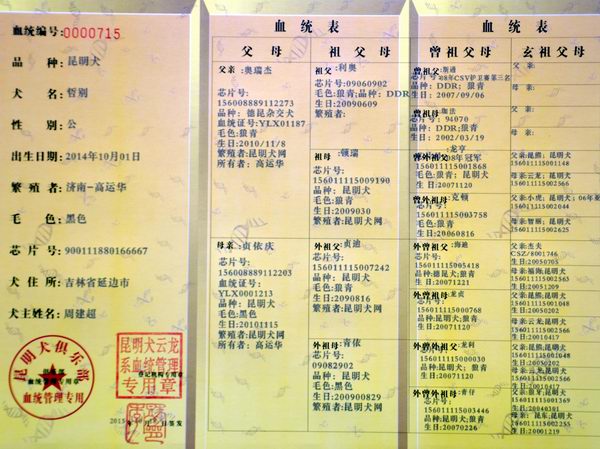 血统编号:0000715
品 种:昆明犬
犬 名:哲别
性 别:公
出生日期:2014年10月01日
繁 殖 者:济南-高运华
毛 色:黑色
芯 片 号:900111880166667
犬 住 所:吉林省延边市
犬主姓名:周建超
昆明犬俱乐部
血统管理专用
昆明犬云龙
系血统管理
专用章
血统表
父母
父亲:奥瑞杰
芯片号:
156008889112273
品种:德昆杂交犬
血统证号:YLX01187
毛色:狼青
生日:2010/11/8
繁殖者:昆明犬网
所有者:高运华
母亲:贞依庆
芯片号:
156008889112203
血统证号:
YLX0001213
品种:昆明犬
毛色:黑色
生日:20101115
繁殖者:昆明犬网
所有者:高运华
祖父母
祖父:利奥
芯片号:09060902
毛色:狼青;品种:DDR
生日:20090609
繁殖者:
祖母:顿瑞
芯片号:
156011115009190
品种:昆明犬
毛色:狼青
生日:2009030
繁殖者:昆明犬网
外祖父:贞迪
芯片号:
156011115007242
品种:昆明犬
毛色:狼青
生日:2090816
繁殖者:昆明犬网
外祖母:青依
芯片号:
09082902
品种:昆明犬
毛色:黑色
生日:200900829
繁殖者:昆明犬网
血统表
曾祖父母
曾祖父:斯通
芯片号:08年CSV护卫赛第三名
品种:DDR;狼青
生日:2007/09/06
曾祖母:伽法
芯片号:94070
品种:DDR;狼青
生日:2002/03/19
曾外祖父:龙亨
芯片号:08年冠军
156011115001868
品种:狼青;昆明犬
生日:20071120
曾外祖母:克顿
芯片号:
156011115003758
品种:昆明犬;狼青
生日:20060816
外曾祖父:海迪
芯片号:
156011115005418
品种:德昆犬;狼青
生日:20071221
外曾祖母:龙贞
芯片号:
品种:昆明犬;狼青
生日:20071120
外曾祖父:龙利
芯片号:
156011115000030
品种:昆明犬;狼青
生日:20071120
外曾祖母:青仔
芯片号:
156011115003446
品种:昆明犬;狼青
生日:20070226
玄祖父母
父亲:
母亲:
父亲:
母亲:
父亲:昆熊;昆明犬
156011115001148
母亲:云龙;昆明犬
156011115002566
父亲:小虎;昆明犬;06年亚
156011115002044
母亲:智丽;昆明犬
156011115002625
父亲:杰夫
CSZ/8001746
生日:20050705
母亲:福海;昆明犬
生日:20051209
父亲:昆熊;昆明犬
母亲:云龙;昆明犬
父亲:昆熊;昆明犬
母亲:云龙;昆明犬
生日:20040301
母亲:昆东;昆明犬
生日:20001219